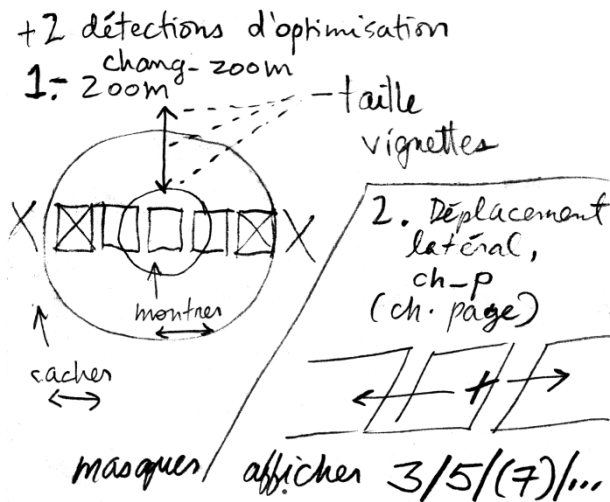 +2 détections d'optimisation
chang-zoom
1.- zoom
-taille
vignettes
X X
montrer
cacher
2. Déplacement
latéral,
ch-p
(ch. page)
masquer/ afficher 3/5/(7)/...